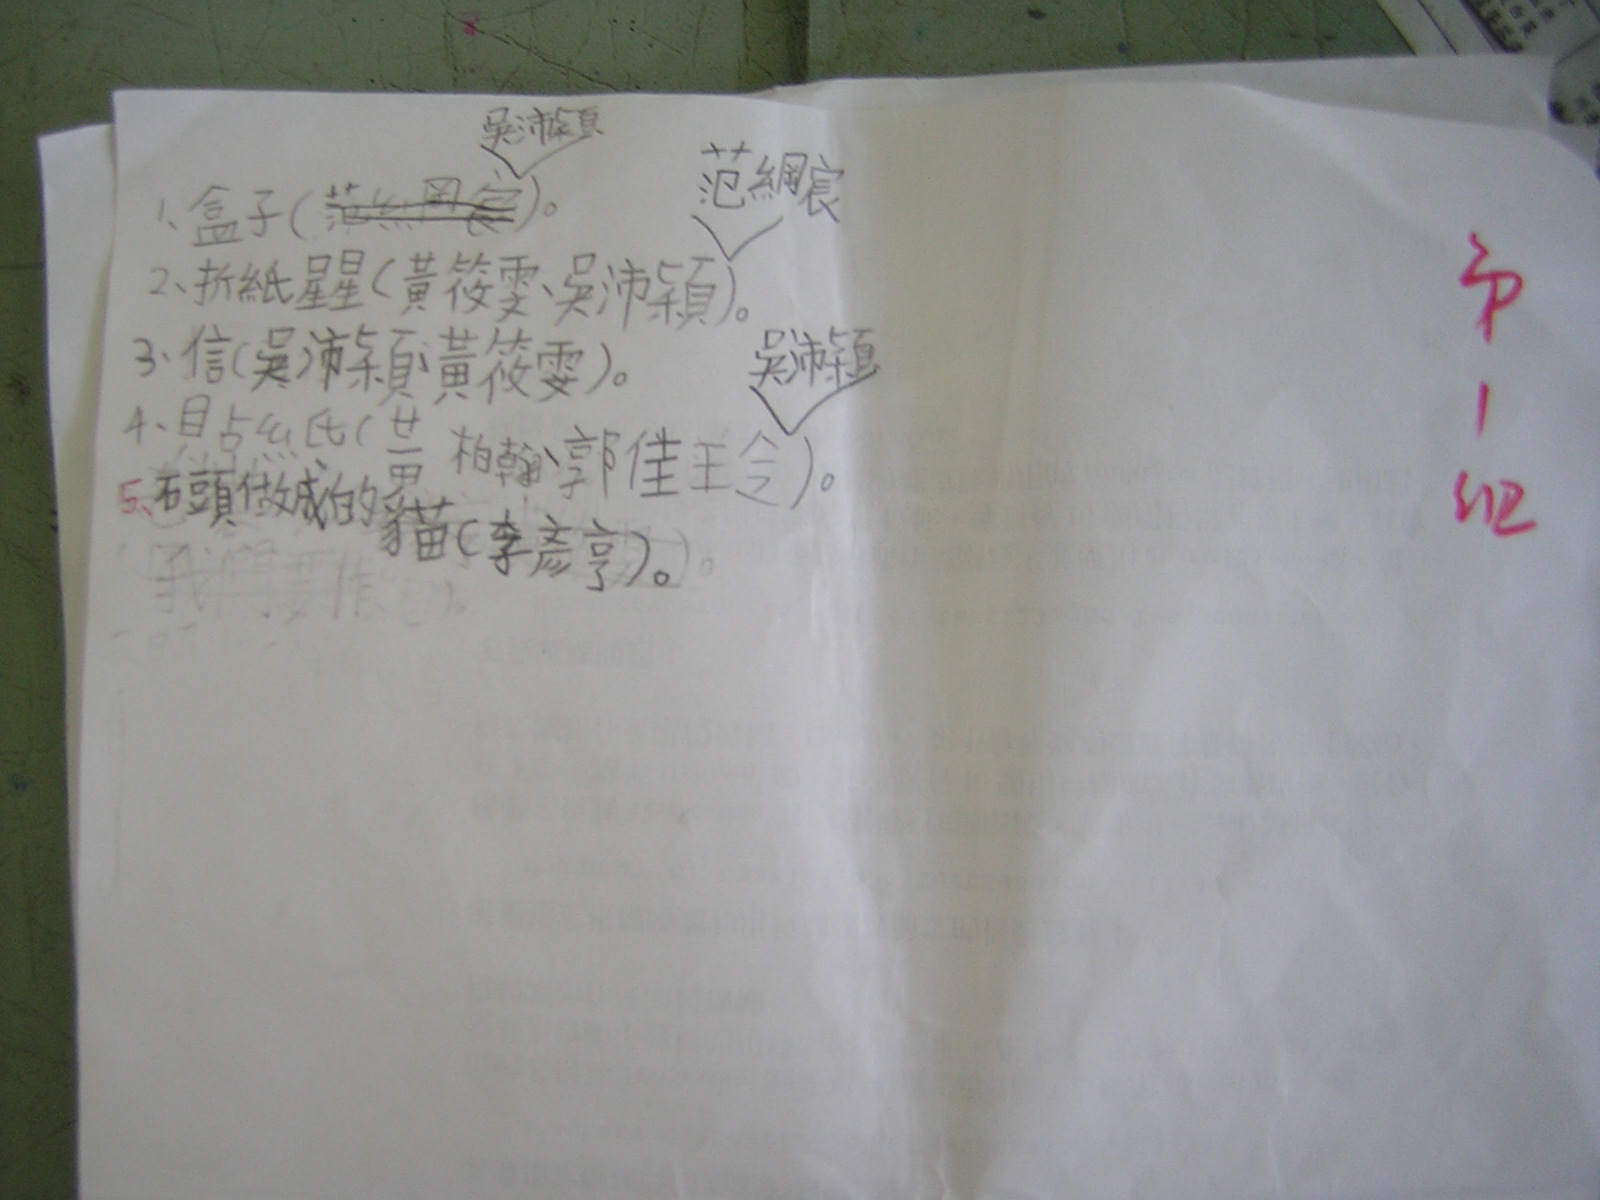 吳沛穎
1、盒子(范綱宸)。
范綱宸
2、折紙星星(黃筱雯、吳沛穎)。
3、信(吳沛穎、黃筱雯)。
吳沛穎
4、貼紙(黃柏翰、郭佳玲)。
5、石頭做成的貓(李彥亨)。
我們要作
第1組